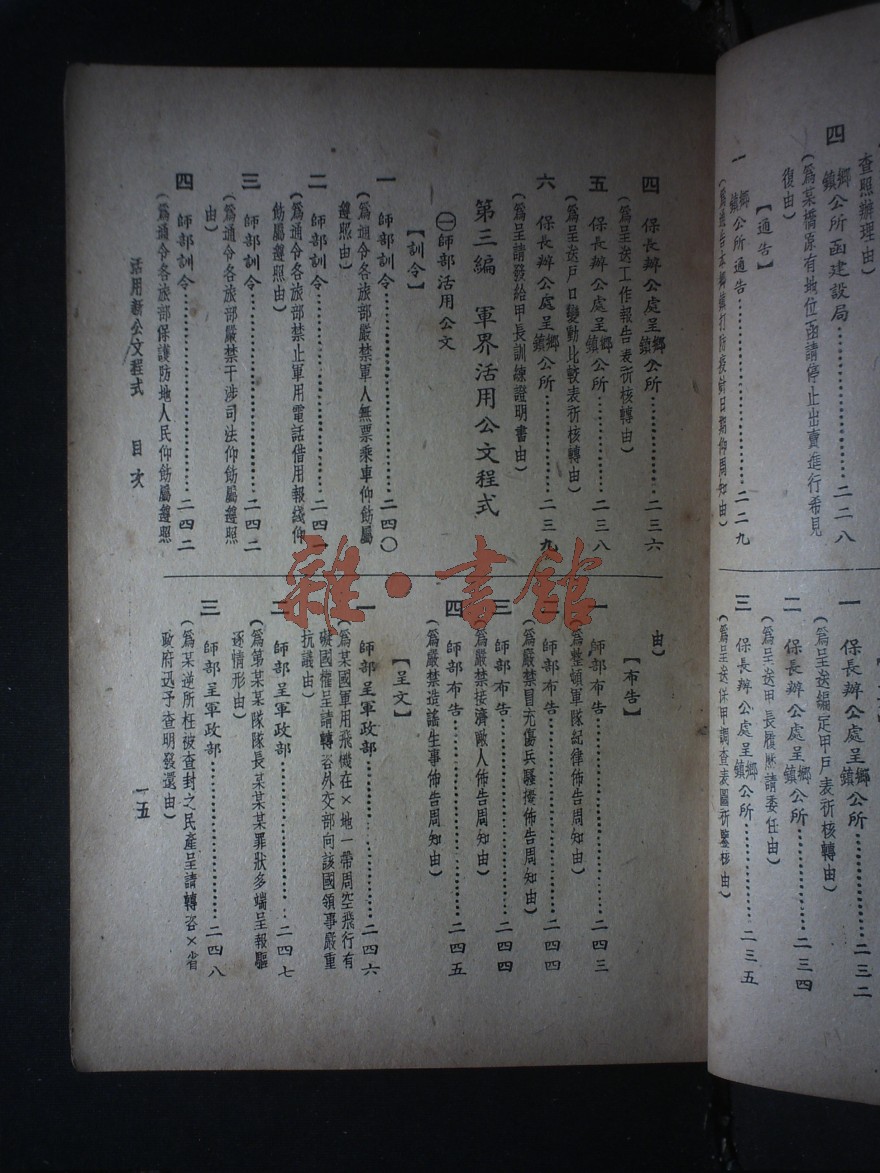 查照辦理由)
四 鄉鎮公所函建設局…………二二八
(為某橋源有地位函請停止出賣進行希見
復由)
【通告】
一 鄉鎮公所通告…………二二九
一 保長辦公處呈鄉鎮公所…………二三二
(為呈送編定甲戶表祈核轉由)
二 保長辦公處呈鄉鎮公所…………二三四
(為呈送甲長履歷請委任由)
三 保長辦公處呈鄉鎮公所…………二三五
(為呈送保甲調查表圖祈鑒核由)
四 保長辦公處呈鄉鎮公所…………二三六
(為呈送工作報告表祈核轉由)
五 保長辦公處呈鄉鎮公所…………二三八
(為呈送戶口變動比較表祈核轉由)
六 保長辦公處呈鄉鎮公所…………二三九
(為呈請發給甲長訓練證明書由)
第三編 軍界活用公文程式
㊀師部活用公文
【訓令】
一 師部訓令…………二四〇
(為通令各旅部嚴禁軍人無票乘車仰飭屬
遵照由)
二 師部訓令…………二四一
(為通令各旅部禁止軍用電話借用報綫仰
飭屬遵照由)
三 師部訓令…………二四二
(為通令各旅部嚴禁干涉司法仰飭屬遵照
由)
四 師部訓令…………二四二
(為通令各旅部保護防地人民仰飭屬遵照
由)
【布告】
一 師部布告…………二四三
(為整頓軍隊紀律佈告周知由)
二 師部布告…………二四四
(為嚴禁冒充傷兵騷擾佈告周知由)
三 師部布告…………二四四
(為嚴禁接濟敵人佈告周知由)
四 師部布告…………二四五
(為嚴禁造謠生事佈告周知由)
【呈文】
一 師部呈軍政部…………二四六
(為某國軍用飛機在×地一帶周空飛行有
礙國權呈請轉咨外交部向該國領事嚴重
抗議由)
二 師部呈軍政部…………二四七
(為第某某隊隊長某某某罪狀多端呈報驅
逐情形由)
三 師部呈軍政部…………二四八
(為某逆所枉被查封之民產呈請轉咨×省
政府迅予查明發還由)
活用新公文程式 目次 一五
雜·書館